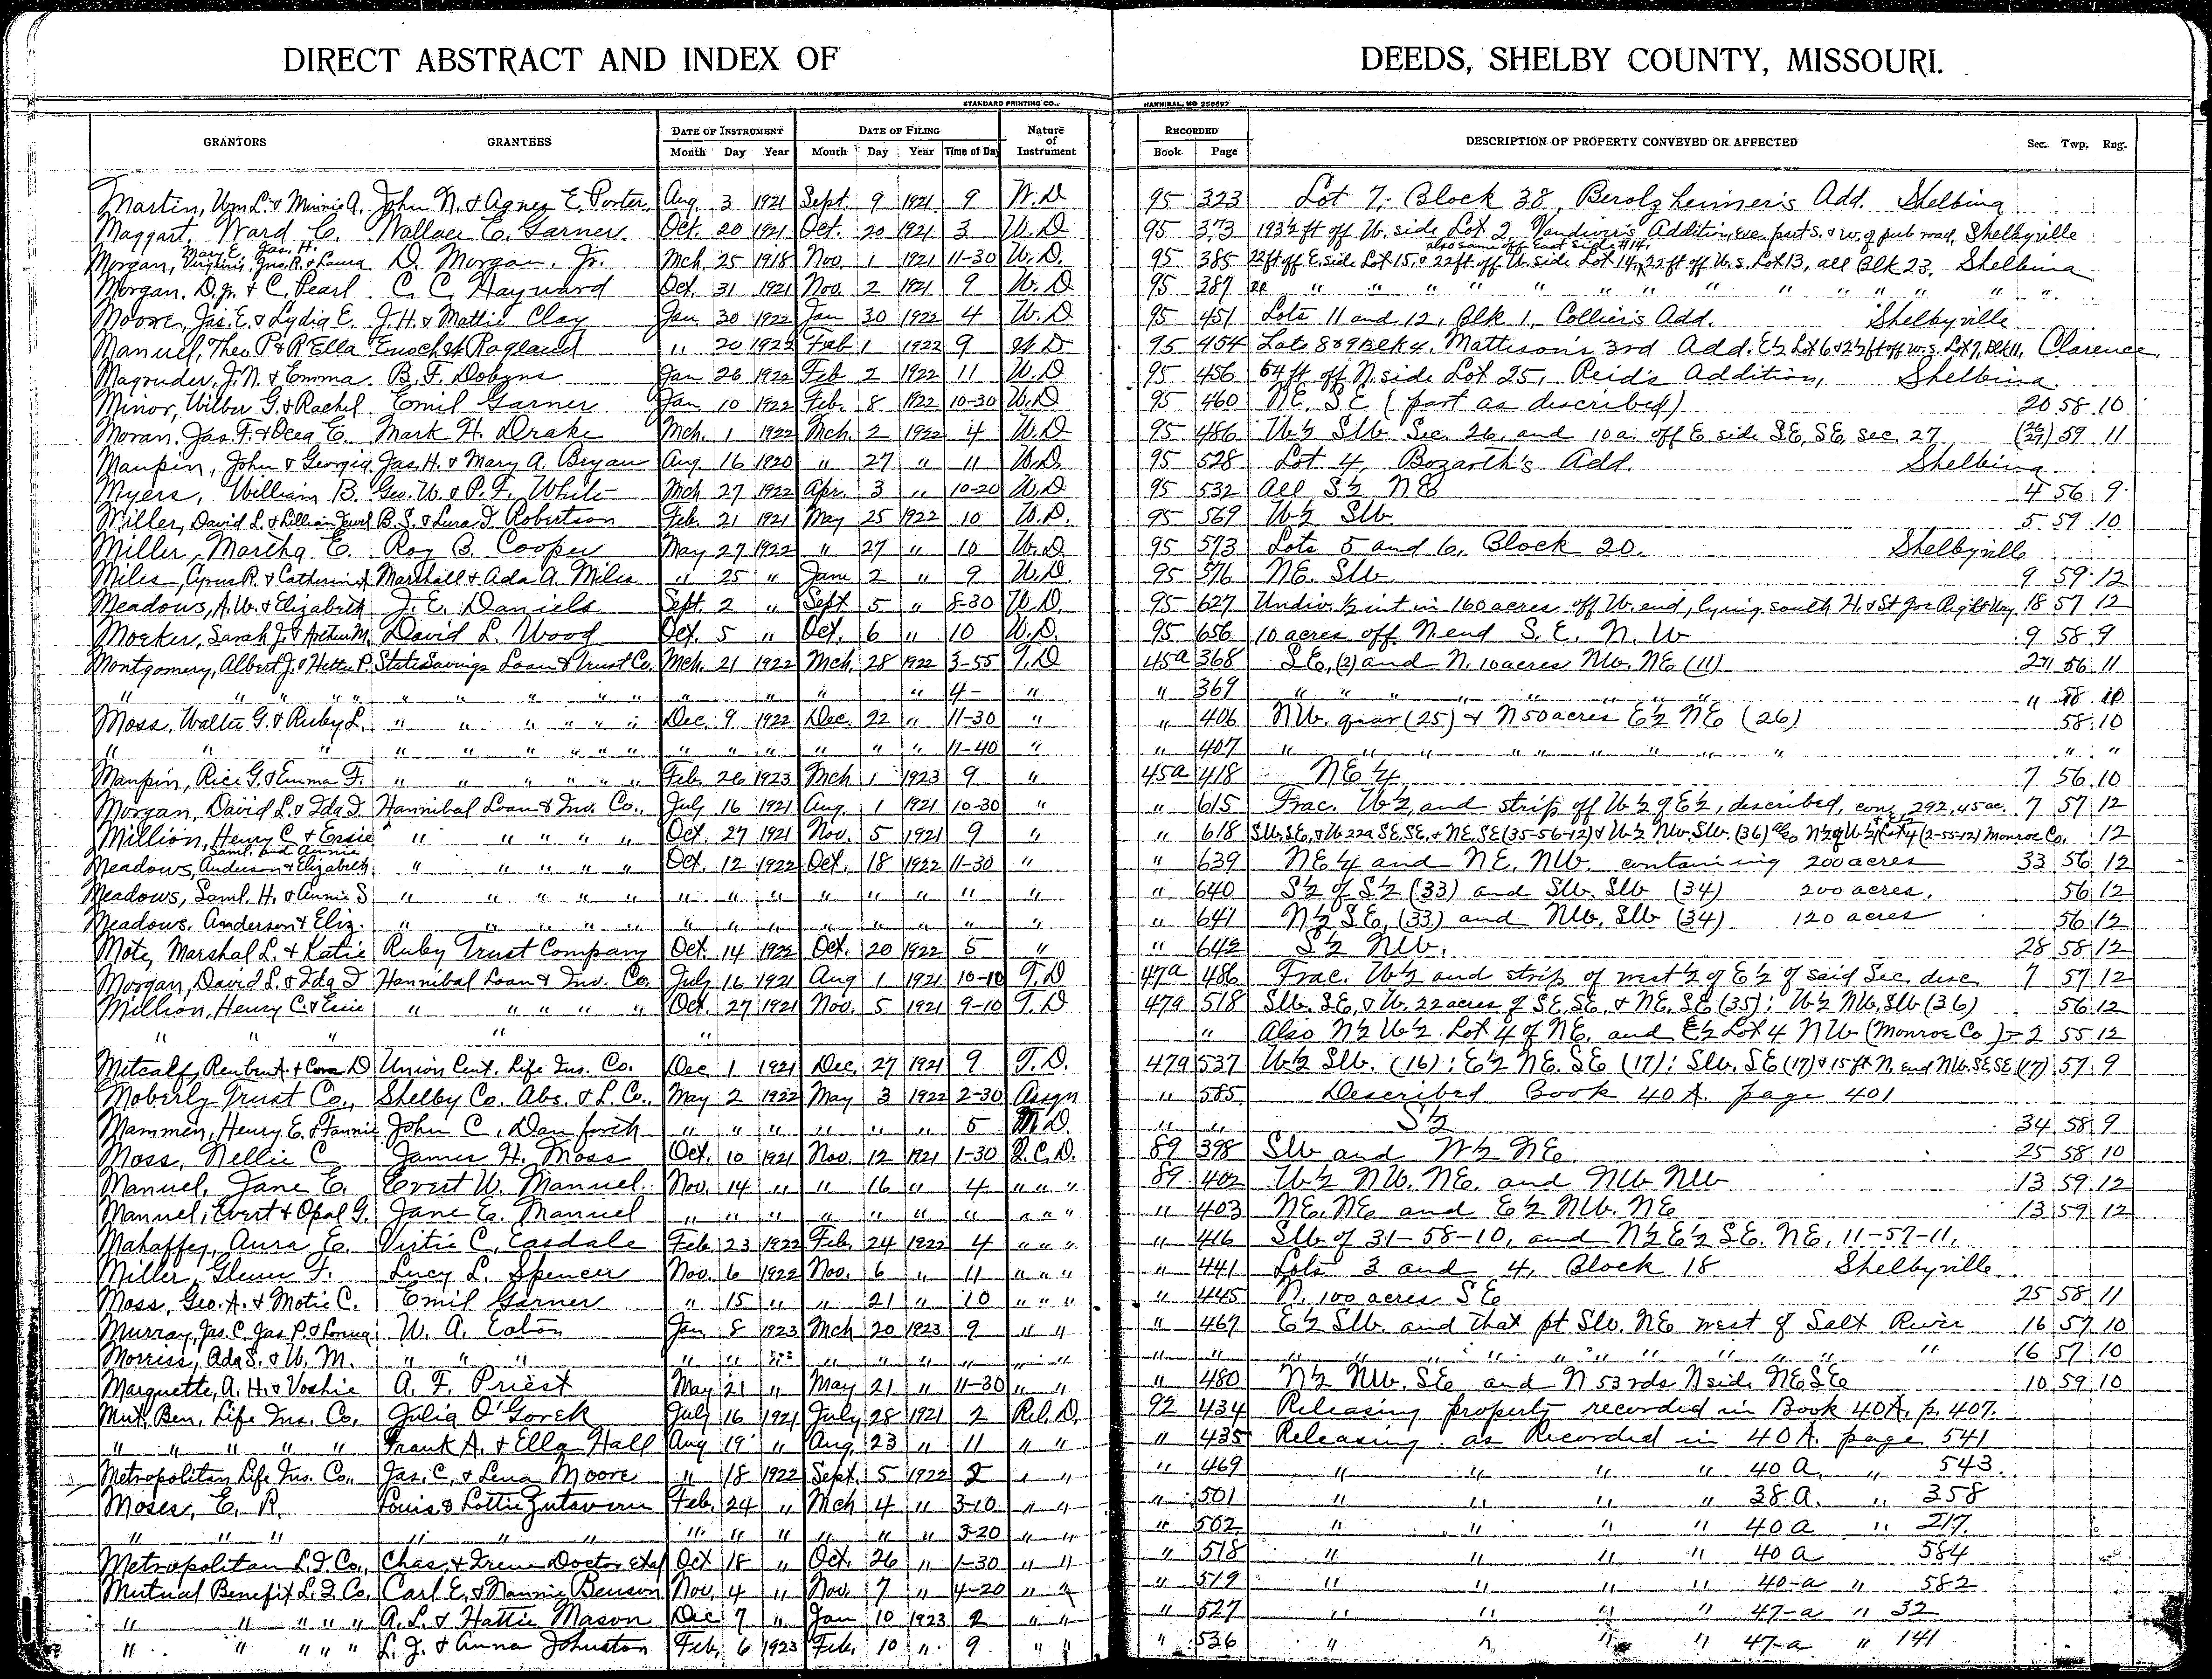 DIRECT ABSTRACT AND INDEX OF DEEDS, SHELBY COUNTY, MISSOURI.
STANDARD PRINTING CO., HANNIBAL, MO 256697
GRANTORS GRANTEES DATE OF INSTRUMENT DATE OF FILING Nature of Instrument RECORDED DESCRIPTION OF PROPERTY CONVEYED OR AFFECTED Sec. Twp. Rng.
Month Day Year Month Day Year Time of Day Book Page
Martin, Wm L. & Minnie A. John N. & Agnes E. Porter, Aug. 3 1921 Sept. 9 1921 9 W.D 95 323 Lot 7, Block 38, Berolzheimer's Add. Shelbina
Maggart, Ward C. Wallace E. Garner Oct. 20 1921 Oct. 20 1921 3 W.D 95 373 193½ ft off W. side Lot 2, Vandiver's Addition, exc. part S. & W. of pub road, Shelbyville
Mary E. Jas. H. also same off East side #14,
Morgan, Virginia, Jno. R. & Laura D. Morgan, Jr. Mch. 25 1918 Nov. 1 1921 11-30 W.D. 95 385 22ft off E. side Lot 15, & 22ft off W. side Lot 14, 22ft off W. s. Lot 13, all Blk 23, Shelbina
Morgan, D. Jr. & C. Pearl C. C. Hayward Oct. 31 1921 Nov. 2 1921 9 W.D 95 387 " " " " " " " " " " " " "
Moore, Jas. E. & Lydia E. J. H. & Mattie Clay Jan 30 1922 Jan 30 1922 4 W.D 95 451 Lots 11 and 12, Blk 1, Collier's Add. Shelbyville
Manuel, Theo P. & R. Ella Enoch Ragland " 20 1922 Feb 1 1922 9 W.D 95 454 Lots 8 & 9 Blk 4, Mattison's 3rd Add. E½ Lot 6 & 2½ ft off w. s. Lot 7, Blk 11, Clarence
Magruder, J. N. & Emma B. F. Dobyns Jan 26 1922 Feb 2 1922 11 W.D 95 456 64 ft off N. side Lot 25, Reid's Addition, Shelbina
Minor, Wilber G. & Rachel Emil Garner Jan 10 1922 Feb. 8 1922 10-30 W.D 95 460 NE. SE (part as described) 20 58 10
Moran, Jas. F. & Ocea E. Mark H. Drake Mch. 1 1922 Mch. 2 1922 4 W.D 95 486 W½ SW. Sec. 26, and 10 a. off E side SE, SE, sec. 27 (26 27) 59 11
Maupin, John & Georgia Jas. H. & Mary A. Bryan Aug 16 1920 " 27 " 11 W.D. 95 528 Lot 4, Bozarth's Add. Shelbina
Myers, William B. Geo. W. & P. F. White Mch 27 1922 Apr. 3 " 10-20 W.D 95 532 All S½ NE 4 56 9
Miller, David L. & Lillian Jewel B. S. & Lura I. Robertson Feb. 21 1921 May 25 1922 10 W.D. 95 569 W½ SW 5 59 10
Miller, Martha E. Roy B. Cooper May 27 1922 " 27 " 10 W.D 95 573 Lots 5 and 6, Block 20, Shelbyville
Miles, Cyrus R. & Catherine Marshall & Ada A. Miles " 25 " June 2 " 9 W.D. 95 576 NE. SW. 9 59 12
Meadows, A. W. & Elizabeth J. E. Daniels Sept. 2 " Sept 5 " 8-30 W.D. 95 627 Undiv. ½ int in 160 acres off W. end, lying south H. & St Joe Right Way 18 57 12
Mocker, Sarah J. & Arthur M. David L. Wood Oct. 5 " Oct. 6 " 10 W.D. 95 656 10 acres off N. end S. E. N. W 9 58 9
Montgomery, Albert J. & Hettie P. State Savings Loan & Trust Co. Mch. 21 1922 Mch. 28 1922 3-55 T.D 45a 368 S.E. (2) and N. 10 acres NW. NE (11) 56 11
" " " " " " " " " " " " " " 4- " " 369 " " " " " " " "
Moss, Walter G. & Ruby L. " " " " " " Dec. 9 1922 Dec. 22 " 11-30 " " 406 NW. quar (25) & N 50 acres E½ NE (26) 58 10
" " " " " " " " " " " " " " " 11-40 " " 407 " " " " " " " " " "
Maupin, Rice G. & Emma F. " " " " " Feb. 26 1923 Mch 1 1923 9 " 45a 418 NE ¼ 7 56 10
Morgan, David L. & Ida I Hannibal Loan & Inv. Co. July 16 1921 Aug. 1 1921 10-30 " " 615 Frac. W½, and strip off W½ of E½, described, con. 292.45 ac. 7 57 12
Million, Henry C. & Essie " " " " " Oct. 27 1921 Nov. 5 1921 9 " " 618 SW. SE, & W. 22a SE, SE, & NE, SE (35-56-12) & W½ NW. SW. (36) also N½ of W½ Lot 4 (2-55-12) Monroe Co. 12
Saml. and Annie
Meadows, Anderson & Elizabeth " " " " " Oct. 12 1922 Oct. 18 1922 11-30 " " 639 NE ¼ and NE. NW. containing 200 acres 33 56 12
Meadows, Saml. H. & Annie S " " " " " " " " " " " " " " 640 S½ of S½ (33) and SW. SW (34) 200 acres. 56 12
Meadows, Anderson & Eliz. " " " " " " " " " " " " " " 641 N½ SE, (33) and NW. SW (34) 120 acres 56 12
Mote, Marshal L. & Katie Ruby Trust Company Oct. 14 1922 Oct. 20 1922 5 " " 642 S½ NW. 28 58 12
Morgan, David L. & Ida I Hannibal Loan & Inv. Co. July 16 1921 Aug 1 1921 10-10 T.D 47a 486 Frac. W½ and strip of west ½ of E½ of said Sec. desc 7 57 12
Million, Henry C. & Essie " " " " " Oct. 27 1921 Nov. 5 1921 9-10 T.D 47a 518 SW. SE, & W. 22 acres of SE, SE, & NE, SE (35); W½ NW, SW (36) 56 12
" " " " " " Also N½ W½ Lot 4 of NE. and E½ Lot 4 NW (Monroe Co.) 2 55 12
Metcalf, Reuben A. & Cora D Union Cent. Life Ins. Co. Dec 1 1921 Dec. 27 1921 9 T.D. 47a 537 W½ SW. (16); E½ NE. SE (17); SW. SE (17) & 15 ft N. end NW. SE, SE (17) 57 9
Moberly Trust Co., Shelby Co. Abs. & L. Co. May 2 1922 May 3 1922 2-30 Assgn " 585 Described Book 40 A. page 401
Mammen, Henry E. & Fannie John C. Danforth " " " " " " 5 M.D. " " S½ 34 58 9
Moss, Nellie C James H. Moss Oct. 10 1921 Nov. 12 1921 1-30 Q.C.D. 89 398 SW and W½ NE. 25 58 10
Manuel, Jane E. Evert W. Manuel Nov. 14 " " 16 " 4 " " " 89 402 W½ NW. NE. and NW NW 13 59 12
Manuel, Evert & Opal G. Jane E. Manuel " " " " " " " " " " " 403 NE. NE and E½ NW. NE 13 59 12
Mahaffey, Aura E. Virtie C. Easdale Feb. 23 1922 Feb. 24 1922 4 " " " " 416 SW of 31-58-10, and N½ E½ SE. NE. 11-57-11.
Miller, Glenn F. Lucy L. Spencer Nov. 6 1922 Nov. 6 " 11 " " " " 441 Lots 3 and 4, Block 18 Shelbyville
Moss, Geo. A. & Motie C. Emil Garner " 15 " " 21 " 10 " " " " 445 N. 100 acres SE 25 58 11
Murray, Jas. C. Jas. P. & W. A. Eaton Jan 8 1923 Mch 20 1923 9 " " " 467 E½ SW. and that pt SW. NE west of Salt River 16 57 10
Morriss, Ada S. & W. M. " " " " " " " " " " " " " " " " " " " " " " " " 16 57 10
Marquette, A. H. & Voshie A. F. Priest May 21 " May 21 " 11-30 " " " 480 N½ NW. SE and N 53 rds N side NE SE 10 59 10
Mut. Ben. Life Ins. Co. Julia O'Gorek July 16 1921 July 28 1921 2 Rel. D. 92 434 Releasing property recorded in Book 40A. p. 407.
" " " " " Frank A. & Ella Hall Aug 19 " Aug. 23 " 11 " " " 435 Releasing as Recorded in 40 A. page 541
Metropolitan Life Ins. Co., Jas. C. & Lena Moore " 18 1922 Sept. 5 1922 2 " " " 469 " " " " 40 A. " 543.
Moses, E. R. Louis & Lottie Gutsvern Feb. 24 " Mch 4 " 3-10 " " " 501 " " " " 38 A. " 358
" " " " " " " " " " " " 3-20 " " " 502 " " " " 40 a " 217.
Metropolitan L. I. Co., Chas. & Irene Doctor etal Oct 18 " Oct. 26 " 1-30 " " " 518 " " " " 40 a 584
Mutual Benefit L. I. Co. Carl E. & Nannie Benson Nov. 4 " Nov. 7 " 4-20 " " " 519 " " " " 40-a " 582
" " " " " A. L. & Hattie Mason Dec 7 " Jan 10 1923 2 " " " 527 " " " " 47-a " 32
" " " " " L. J. & Anna Johnston Feb. 6 1923 Feb. 10 " 9 " " " 536 " " " " 47-a " 141